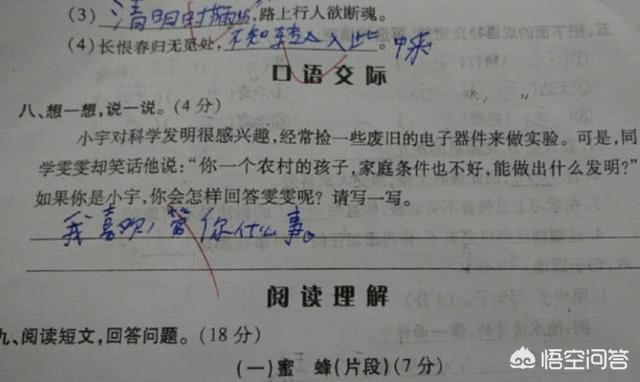 (3)清明时节雨纷纷,路上行人欲断魂。
(4)长恨春归无觅处,不知转入此中来
口语交际
八、想一想,说一说。(4分)
小宇对科学发明很感兴趣,经常捡一些废旧的电子器件来做实验。可是,同
学雯雯却笑话他说:“你一个农村的孩子,家庭条件也不好,能做出什么发明?”
如果你是小宇,你会怎样回答雯雯呢?请写一写。
我喜欢,管你什么事。
阅读理解
九、阅读短文,回答问题。(18分)
(一)蜜 蜂(片段)(7分)
悟空问答